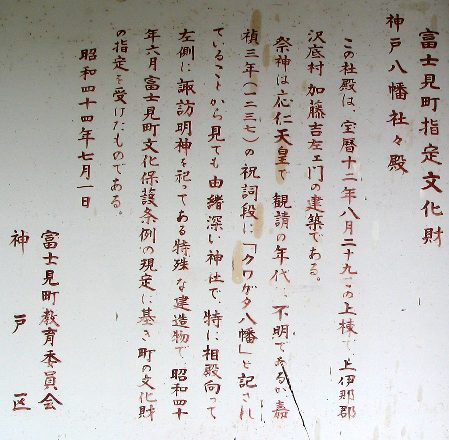 富士見町指定文化財
神戸八幡社々殿
この社殿は、宝暦十二年八月二十九日の上棟で上伊那郡
沢底村 加藤吉左ェ門の建築である。
祭神は応仁天皇で 観請の年代は不明であるが嘉
禎三年(一二三七)の祝詞段に「クワガタ八幡」と記され
ていることから見ても由緒深い神社で、特に相殿向って
左側に諏訪明神を祀ってある特殊な建造物で、昭和四十
年六月富士見町文化保護条例の規定に基き町の文化財
の指定を受けたものである。
昭和四十四年七月一日
富士見町教育委員会
神戸区